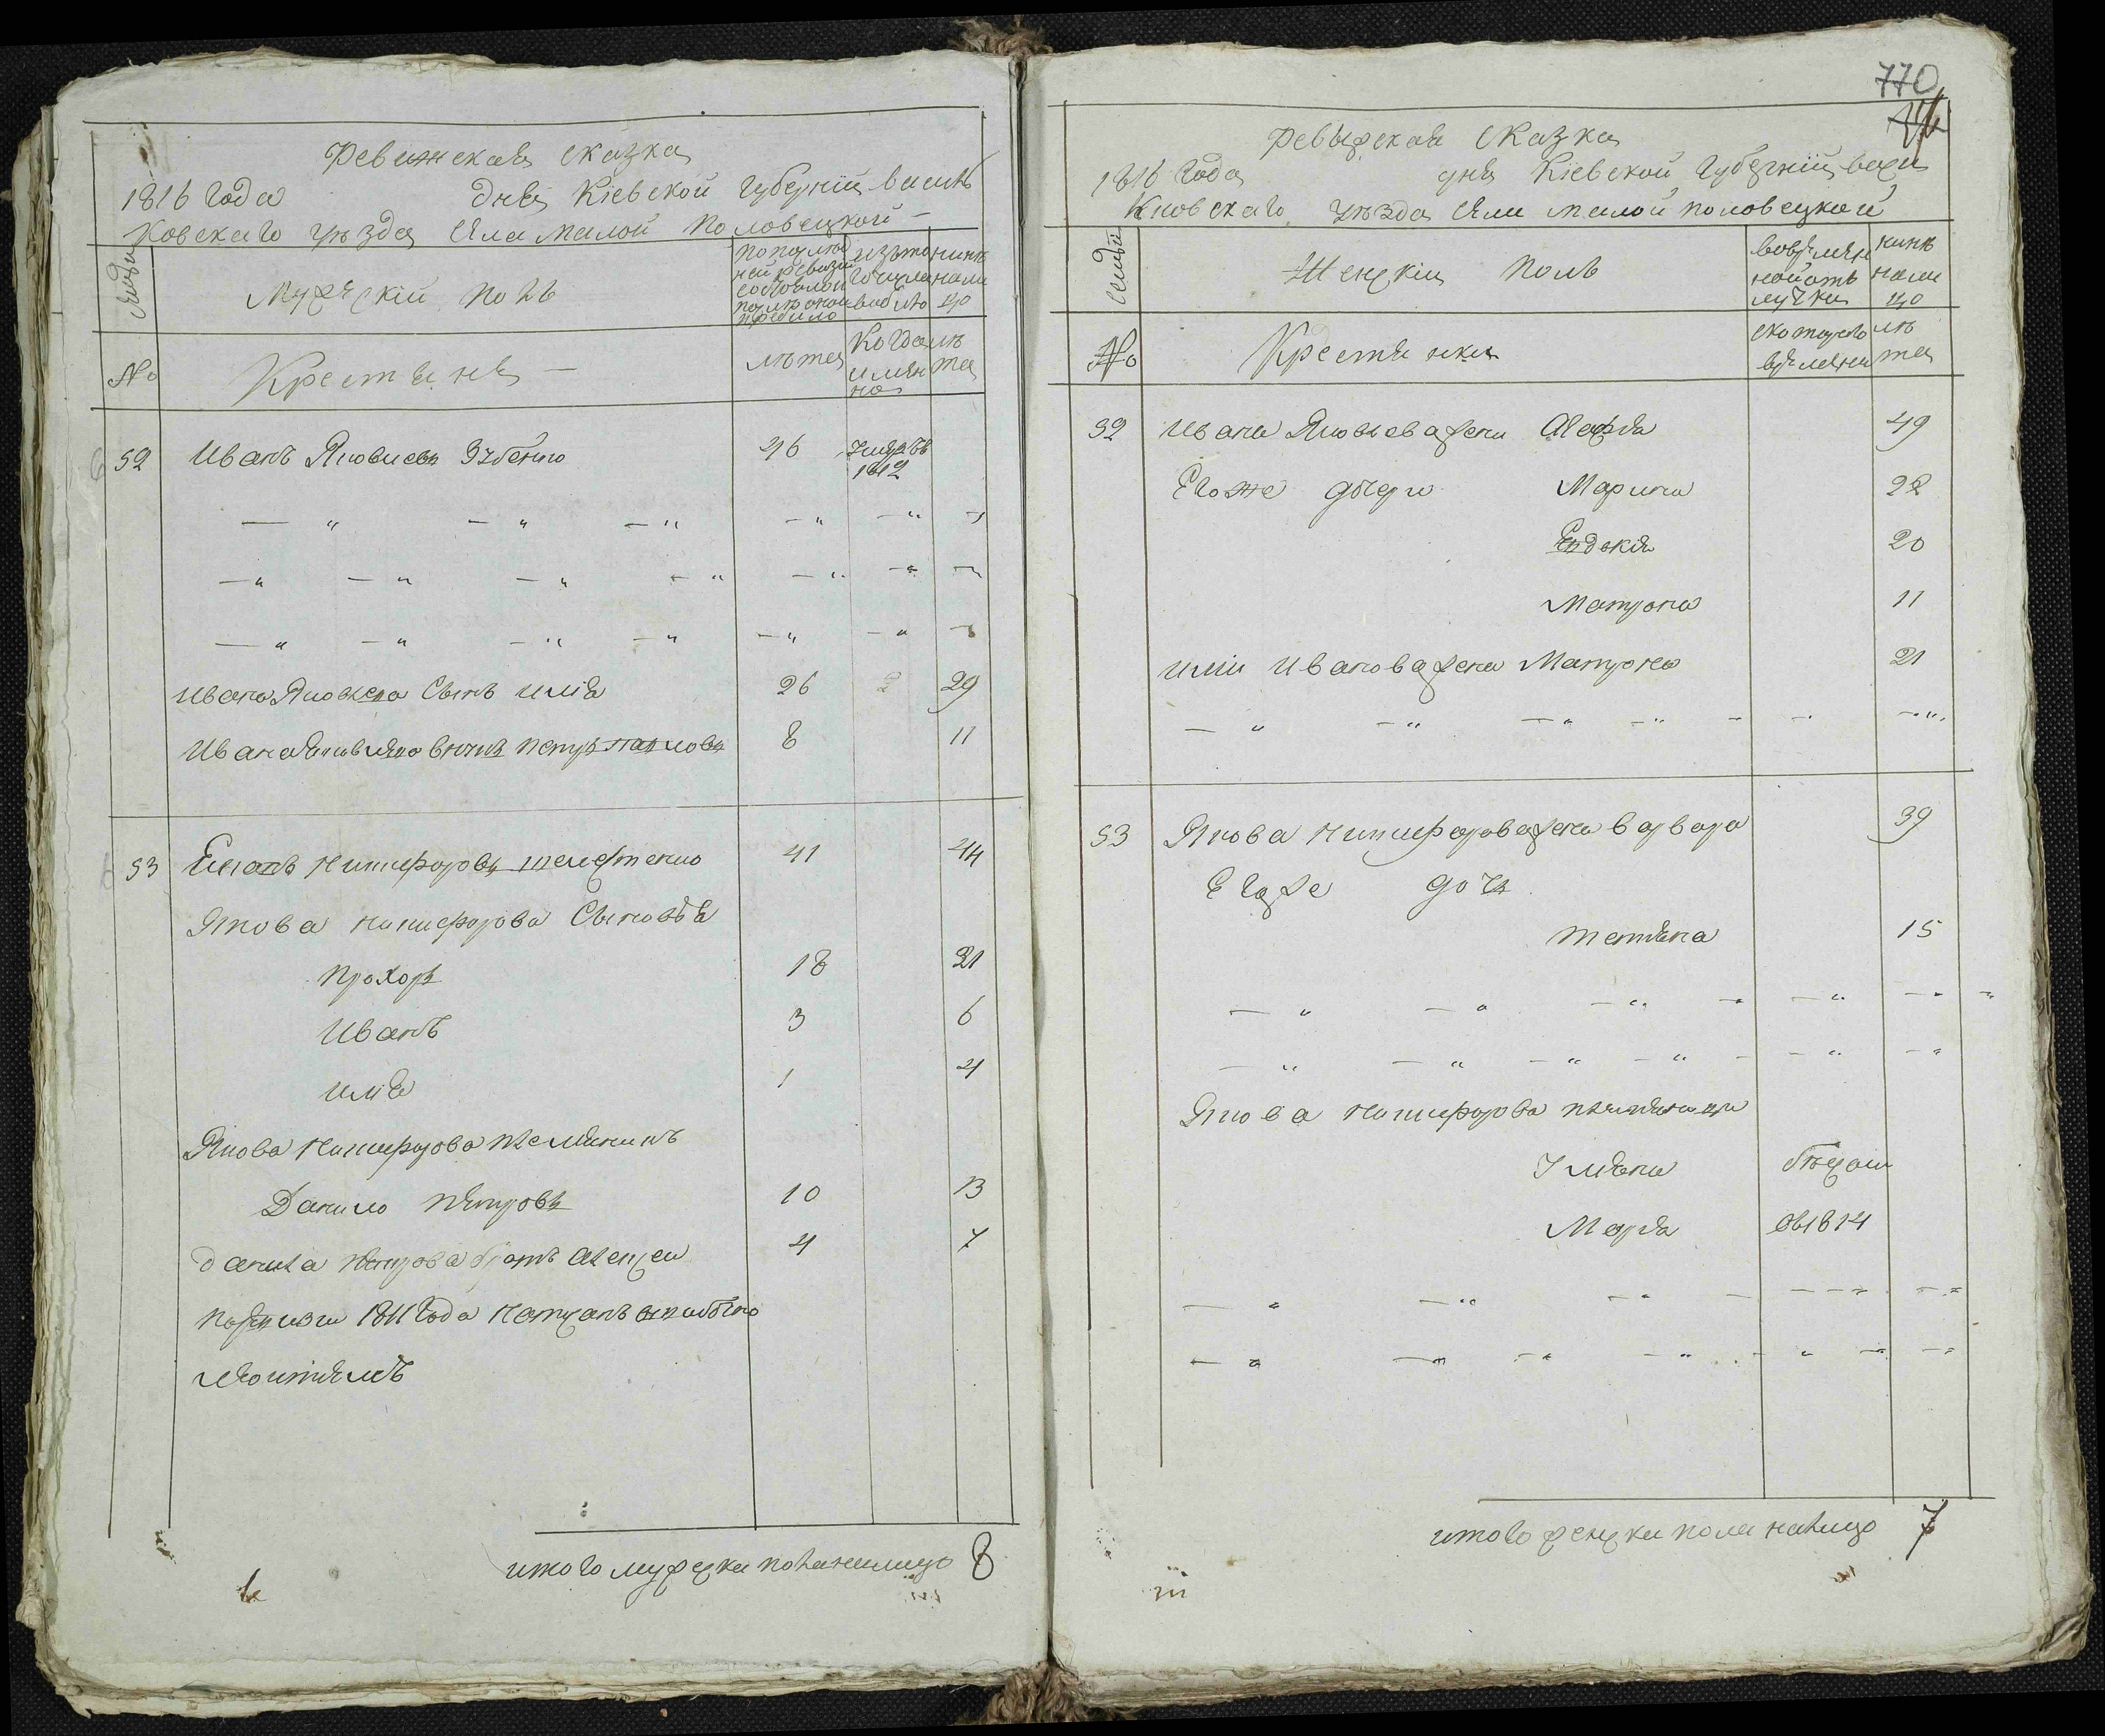 Ревижская сказка
1816 Года дня Кіевской Губерніи василь
ковскаго уѣзда Села Малой Половецкой
Семьи
Мужескій полъ
по послед
ней ревизіи
состояло и
после оной
прибило
изъ то
го числа
выбыло
нинѣ
нали
цо
№
Крестьяне
лѣта
Когда
имян
но
лѣ
та
52 Иванъ Яковлевъ Зубенко 46 Умерлъ 1812
Ивана Яковлева Сынъ Илія 26 29
Ивана Яковлева внукъ Петръ Павловъ 8 11
53 Яковъ Никифоровъ 41 44
Якова Никифорова Сыновья
Прохоръ 18 21
Иванъ 3 6
Илія 1 4
Якова Никифорова племяникъ
Данило Петровъ 10 13
Данила Петрова братъ Алексей 4 7
По ревизіи 1811 Года написанъ
итого мужеска пола налицо 8
770
Ревизская Сказка
1816 Года дня Кіевской Губерніи васи
лковскаго уѣзда Села Малой половецкой
Семьи
Женскій полъ
во времян
ной отъ
лучки
нинѣ
нали
цо
№
Крестянки
скотораго
времяни
лѣ
та
52 Ивана Яковлева жена Агафія 49
Егоже дочери Марина 22
Евдокія 20
Матрона 11
Иліи Иванова жена Матрона 21
53 Якова Никифорова жена варвара 39
Егоже дочь
Тетяна 15
Якова Никифорова племяници
Уляна бѣжали
Марія въ 1814
итого женска пола налицо 7